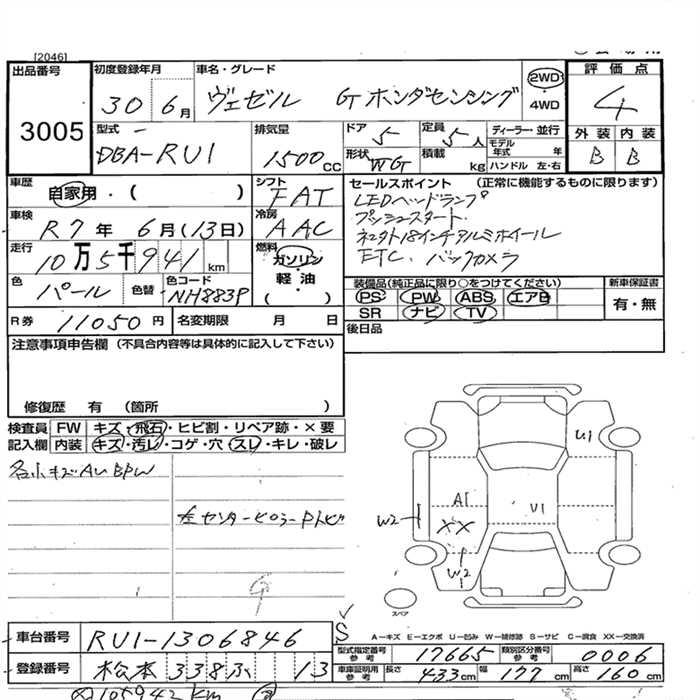 [2046]
出品番号 3005
初度登録年月 30 6月
車名・グレード ヴェゼル GT ホンダセンシング
2WD・4WD
評価点 4
外装 B 内装 B
型式 DBA-RU1
排気量 1500cc
ドア 5
形状 WG
定員 5人
積載 kg
ディーラー・並行
モデル年式 年
ハンドル 左・右
車歴 自家用・( )
シフト FAT
セールスポイント (正常に機能するものに限ります)
LEDヘッドランプ
プッシュスタート
18インチアルミホイール
ETC. バックカメラ
車検 R7年 6月(13日)
冷房 AAC
走行 10万5千941km
燃料 ガソリン・軽油 ( )
色 パール 色替 色コード NH883P
装備品(純正品に限り○をつけてください)
PS PW ABS エアB
SR ナビ TV
新車保証書 有・無
R券 11050円 名変期限 月 日
後日品
注意事項申告欄 (不具合内容等は具体的に記入して下さい)
修復歴 有 (箇所 )
検査員記入欄
FW キズ・飛石・ヒビ割・リペア跡・×要
内装 キズ・汚レ・コゲ・穴・スレ・キレ・破レ
各小キズAU BPW
左センターピラーPトビ
U1
A1
U1
W2
XX
W2
スペア
A-キズ E-エクボ U-凹み W-補修跡 S-サビ C-腐食 XX-交換済
車台番号 RU1-1306846
S
型式指定番号 参考 17665
類別区分番号 参考 0006
登録番号 松本 338 ふ 13
車庫証明用 参考 長さ 433cm 幅 177cm 高さ 160cm
105942km